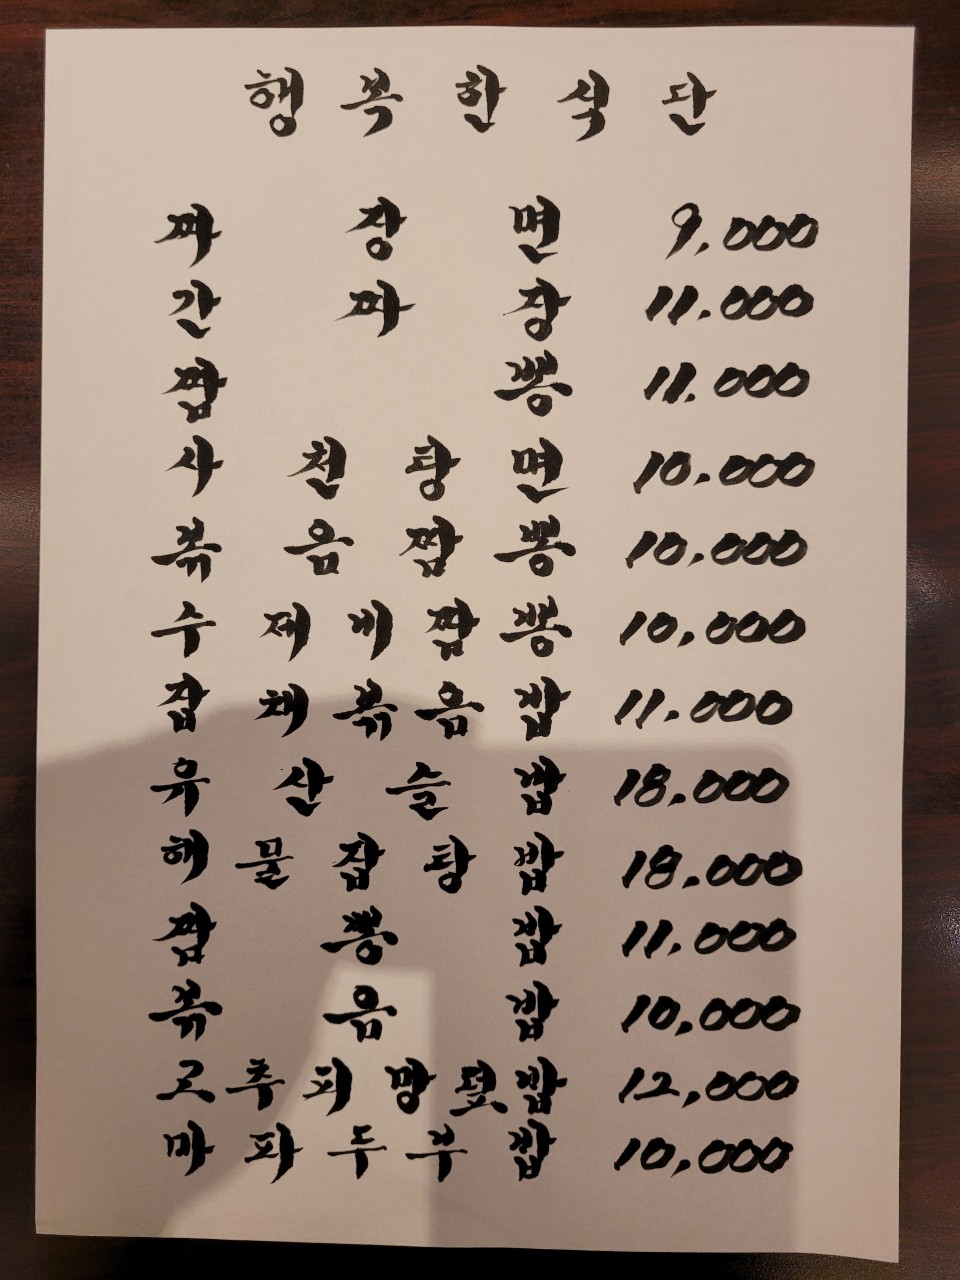 행복한식단
짜장면 9,000
간짜장 11.000
짬뽕 11.000
사천탕면 10.000
볶음짬뽕 10,000
수제비짬뽕 10,000
잡채볶음밥 11.000
유산슬밥 18.000
해물잡탕밥 18.000
짬뽕밥 11.000
볶음밥 10,000
고추피망덮밥 12,000
마파두부밥 10,000